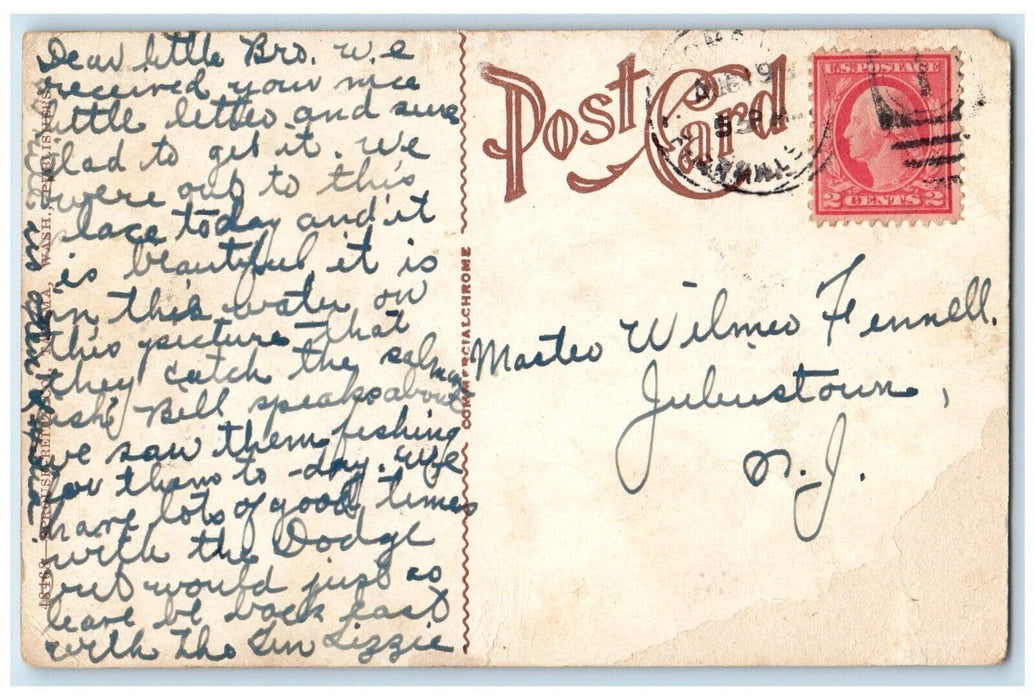 Dear little Bro. We
received your nice
little letter and sure
glad to get it. We
were out to this
place today and it
is beautiful it is
in this water on
this picture that
they catch the salmon
fish Bell speaks about
we saw them fishing
for them to-day. We
have lots of good times
with the Dodge
but would just as
leave be back east
with the Tin Lizzie
48468—SPROUSE & TACOMA, WASH., PUBLISHERS
COMMERCIALCHROME
POST CARD
AUG 19
5 PM
U.S. POSTAGE
2 CENTS 2
Master Wilmer Fennell.
Juliustown,
N.J.